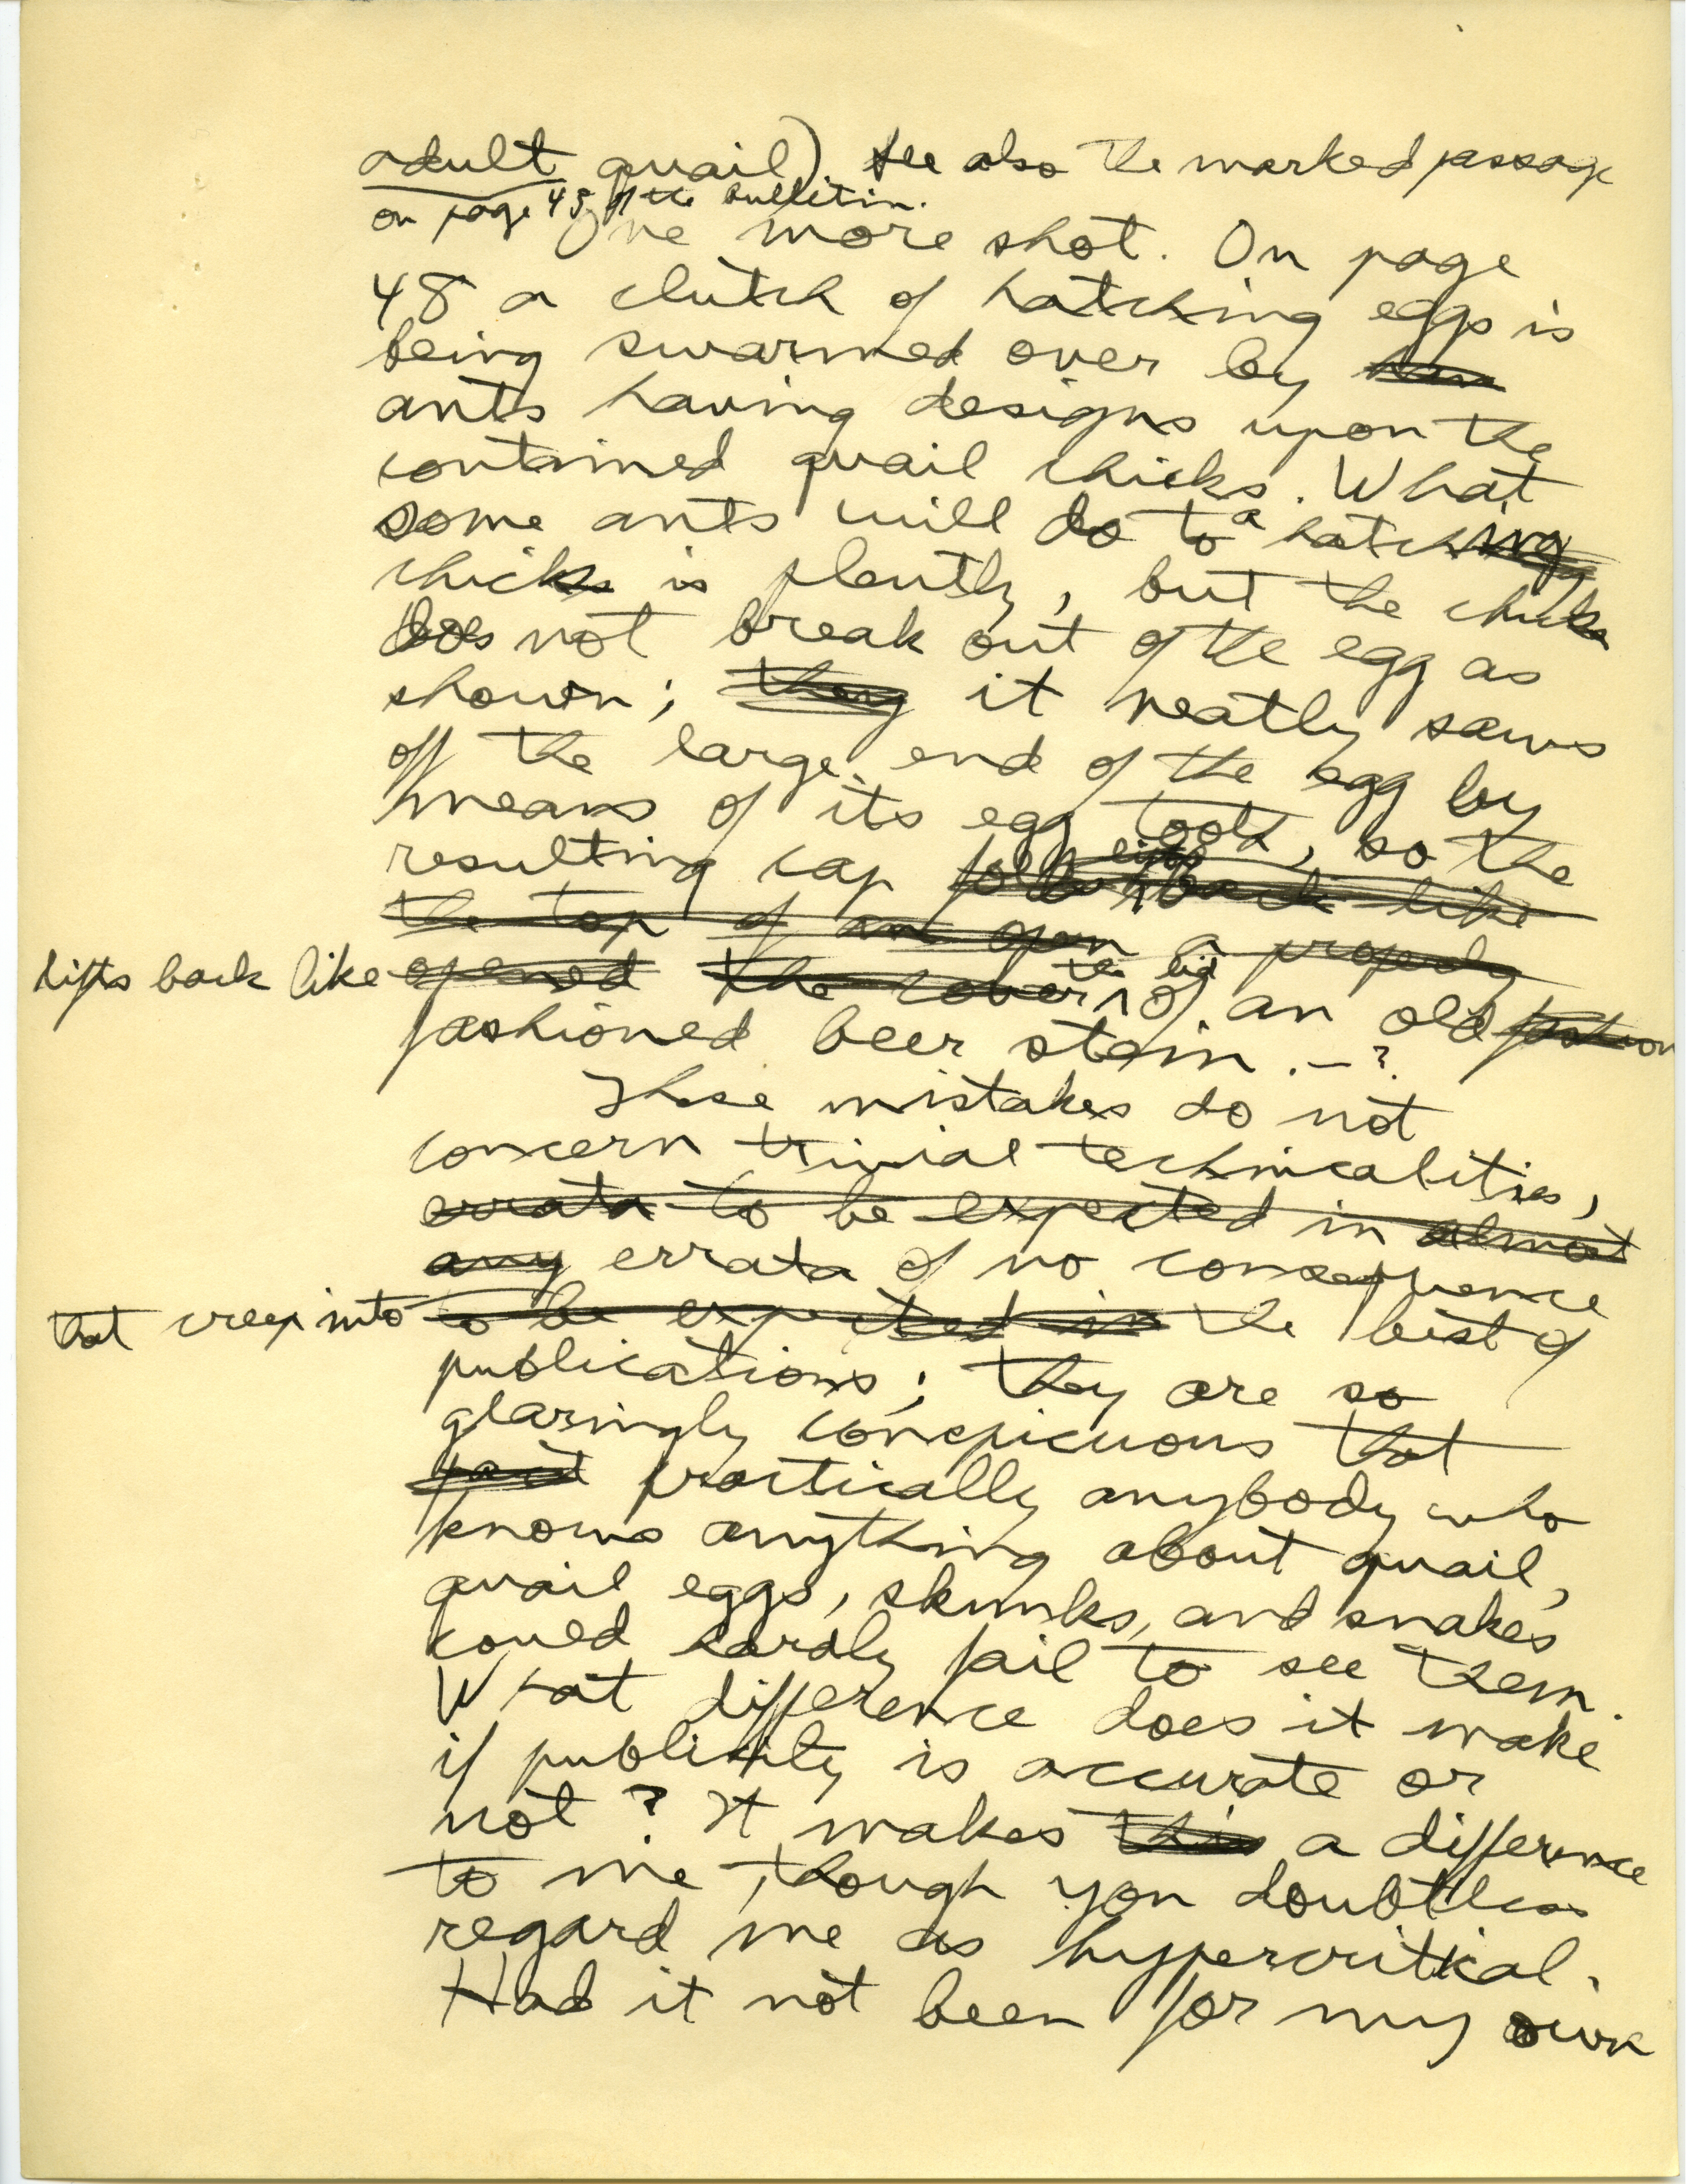 adult quail). See also the marked passage
on page 45 of the bulletin.
One more shot. On page
48 a clutch of hatching eggs is
being swarmed over by
ants having designs upon the
contained quail chicks. What
some ants will do to a hatching
chick is plenty, but the chick
does not break out of the egg as
shown; they it neatly saws
off the large end of the egg by
means of its egg tooth, so the
resulting cap folds back like
the top of an open a properly
lifts back like opened the cover the lid of an old fashion
fashioned beer stein. – ?
These mistakes do not
concern trivial technicalities,
errata to be expected in almost
any errata of no consequence
that creep into to be expected in the best of
publications; they are so
glaringly conspicuous that
practically anybody who
knows anything about quail,
quail eggs, skunks, and snakes
could hardly fail to see them.
What difference does it make
if publicity is accurate or
not? It makes this a difference
to me, though you doubtless
regard me as hypercritical.
Had it not been for my own